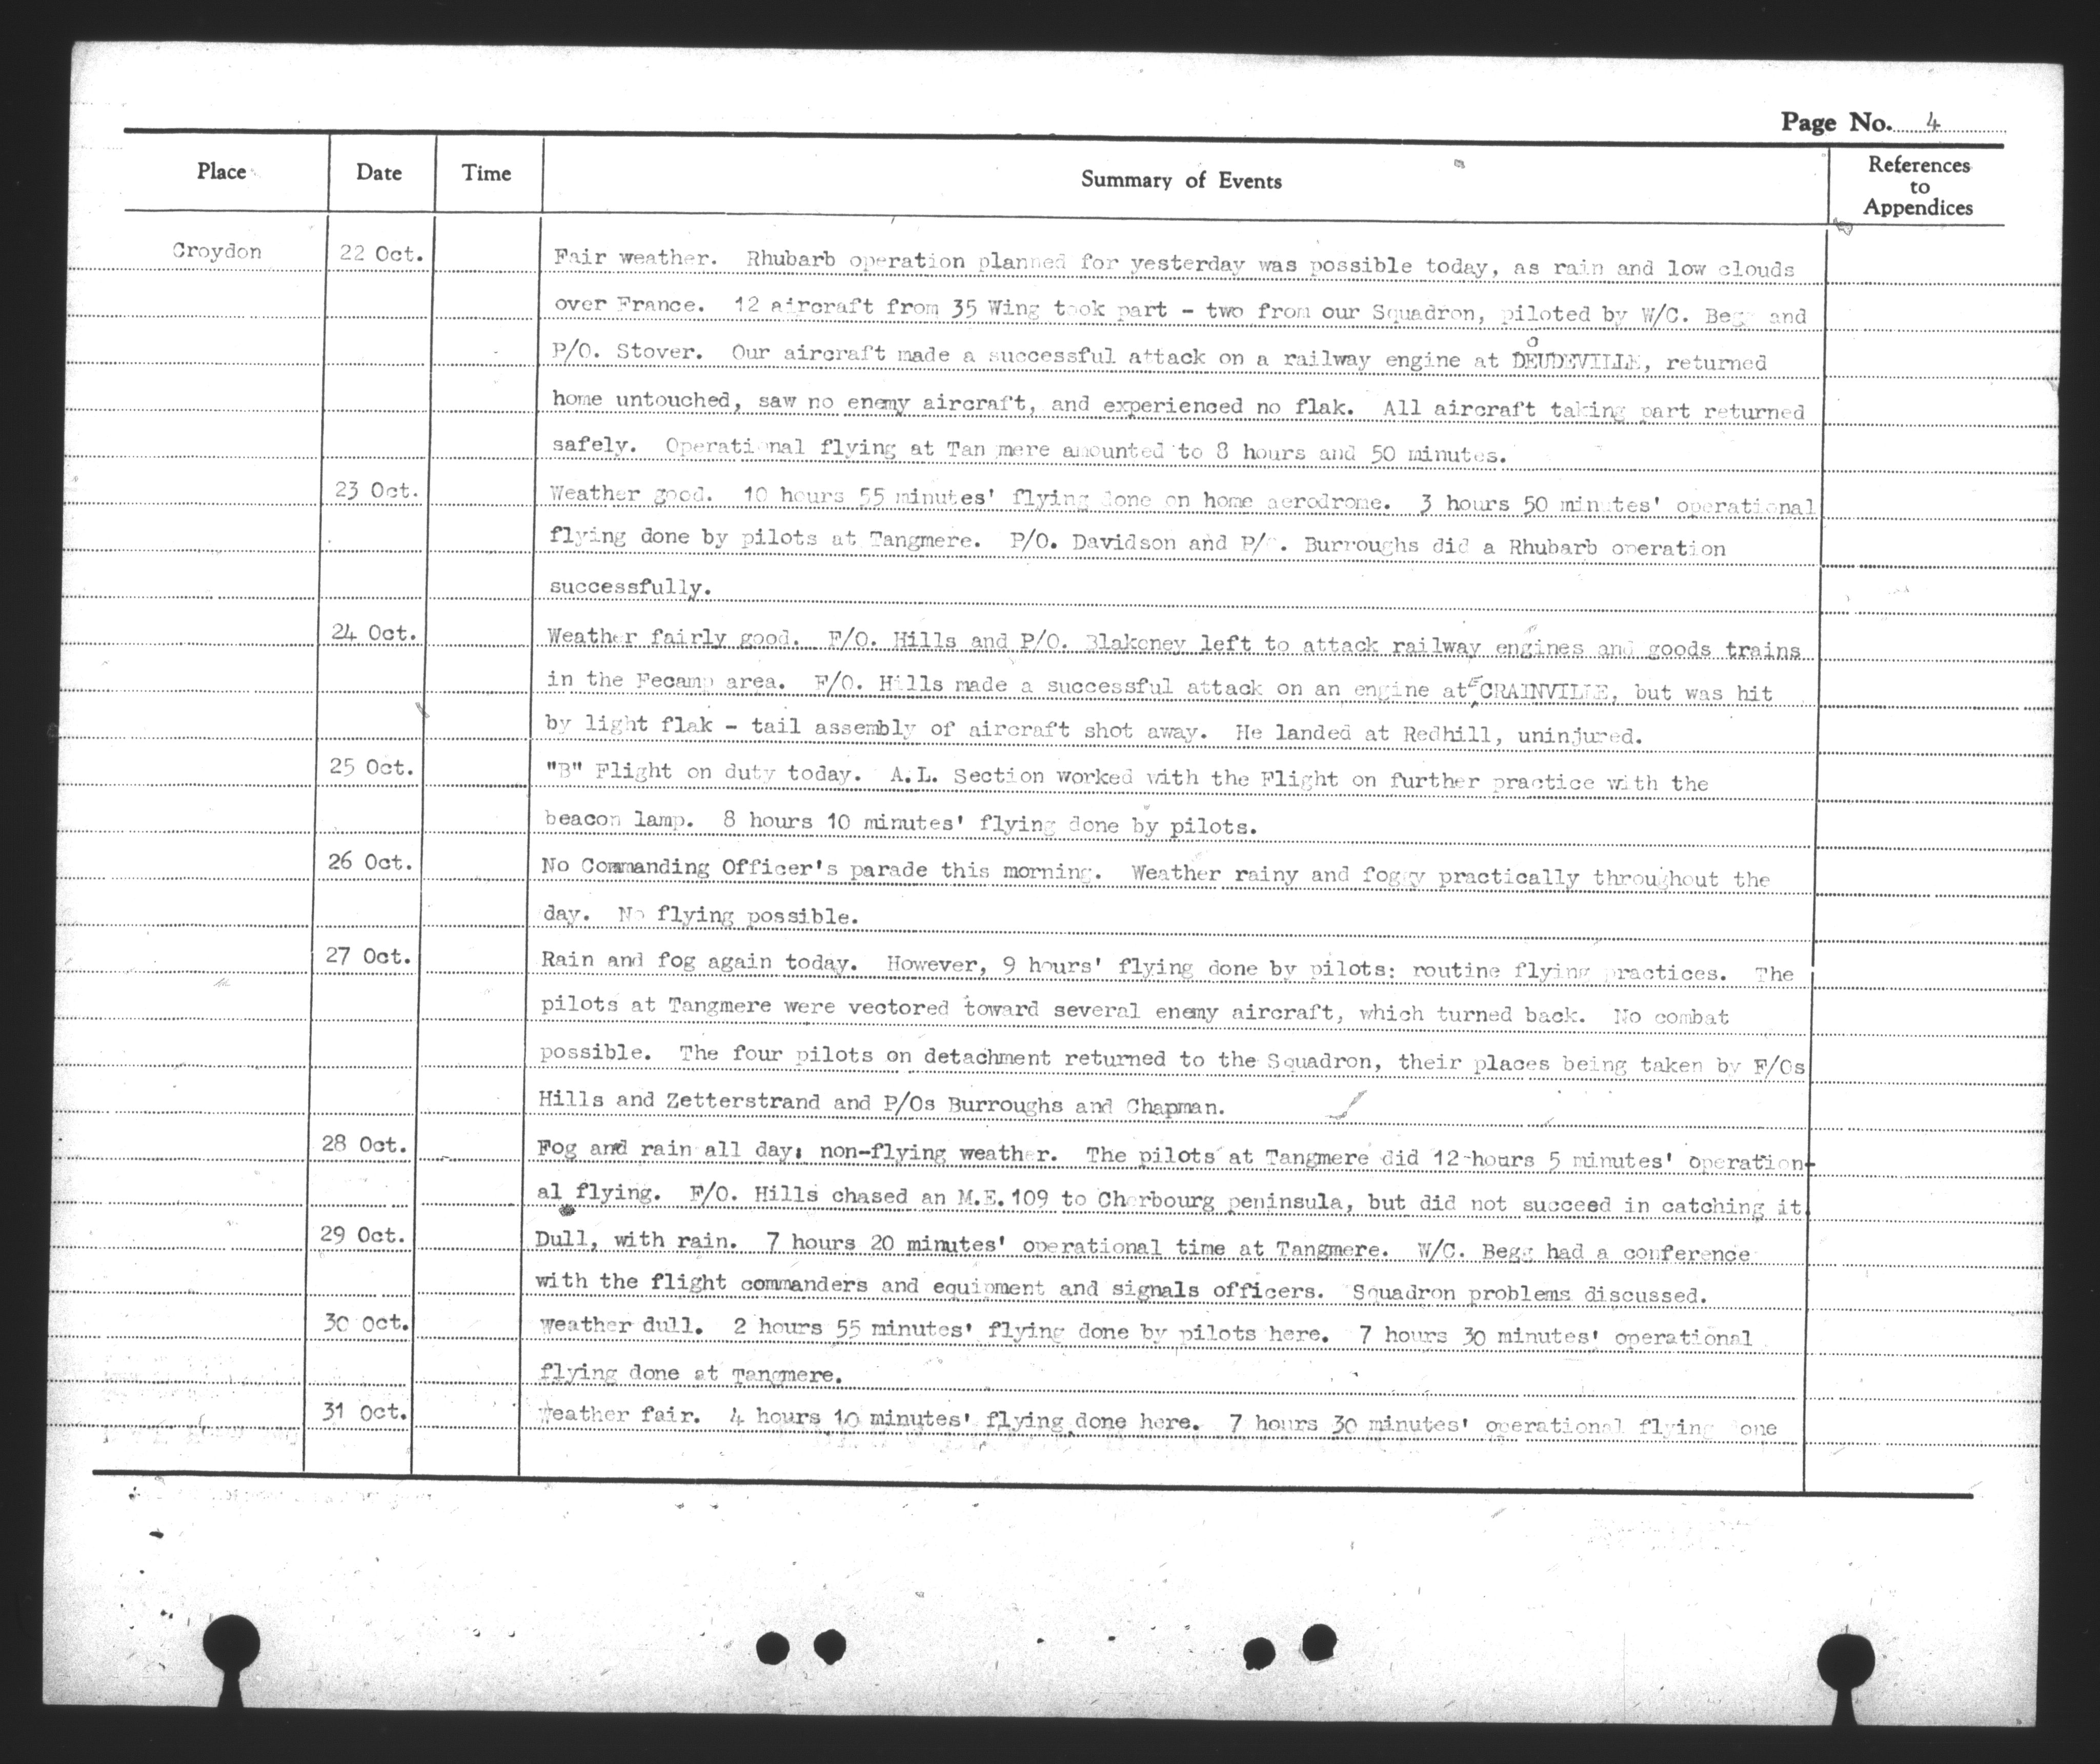 Page No. 4
Place Date Time Summary of Events References to Appendices
Croydon 22 Oct. Fair weather. Rhubarb operation planned for yesterday was possible today, as rain and low clouds
over France. 12 aircraft from 35 Wing took part - two from our Squadron, piloted by W/C. Begg and
P/O. Stover. Our aircraft made a successful attack on a railway engine at DOUDEVILLE, returned
home untouched, saw no enemy aircraft, and experienced no flak. All aircraft taking part returned
safely. Operational flying at Tangmere amounted to 8 hours and 50 minutes.
23 Oct. Weather good. 10 hours 55 minutes' flying done on home aerodrome. 3 hours 50 minutes' operational
flying done by pilots at Tangmere. P/O. Davidson and P/O. Burroughs did a Rhubarb operation
successfully.
24 Oct. Weather fairly good. F/O. Hills and P/O. Blakeney left to attack railway engines and goods trains
in the Fecamp area. F/O. Hills made a successful attack on an engine at CRAINVILLE, but was hit
by light flak - tail assembly of aircraft shot away. He landed at Redhill, uninjured.
25 Oct. "B" Flight on duty today. A.L. Section worked with the Flight on further practice with the
beacon lamp. 8 hours 10 minutes' flying done by pilots.
26 Oct. No Commanding Officer's parade this morning. Weather rainy and foggy practically throughout the
day. No flying possible.
27 Oct. Rain and fog again today. However, 9 hours' flying done by pilots: routine flying practices. The
pilots at Tangmere were vectored toward several enemy aircraft, which turned back. No combat
possible. The four pilots on detachment returned to the Squadron, their places being taken by F/Os
Hills and Zetterstrand and P/Os Burroughs and Chapman.
28 Oct. Fog and rain all day: non-flying weather. The pilots at Tangmere did 12 hours 5 minutes' operation-
al flying. F/O. Hills chased an M.E.109 to Cherbourg peninsula, but did not succeed in catching it.
29 Oct. Dull, with rain. 7 hours 20 minutes' operational time at Tangmere. W/C. Begg had a conference
with the flight commanders and equipment and signals officers. Squadron problems discussed.
30 Oct. Weather dull. 2 hours 55 minutes' flying done by pilots here. 7 hours 30 minutes' operational
flying done at Tangmere.
31 Oct. Weather fair. 4 hours 10 minutes' flying done here. 7 hours 30 minutes' operational flying done